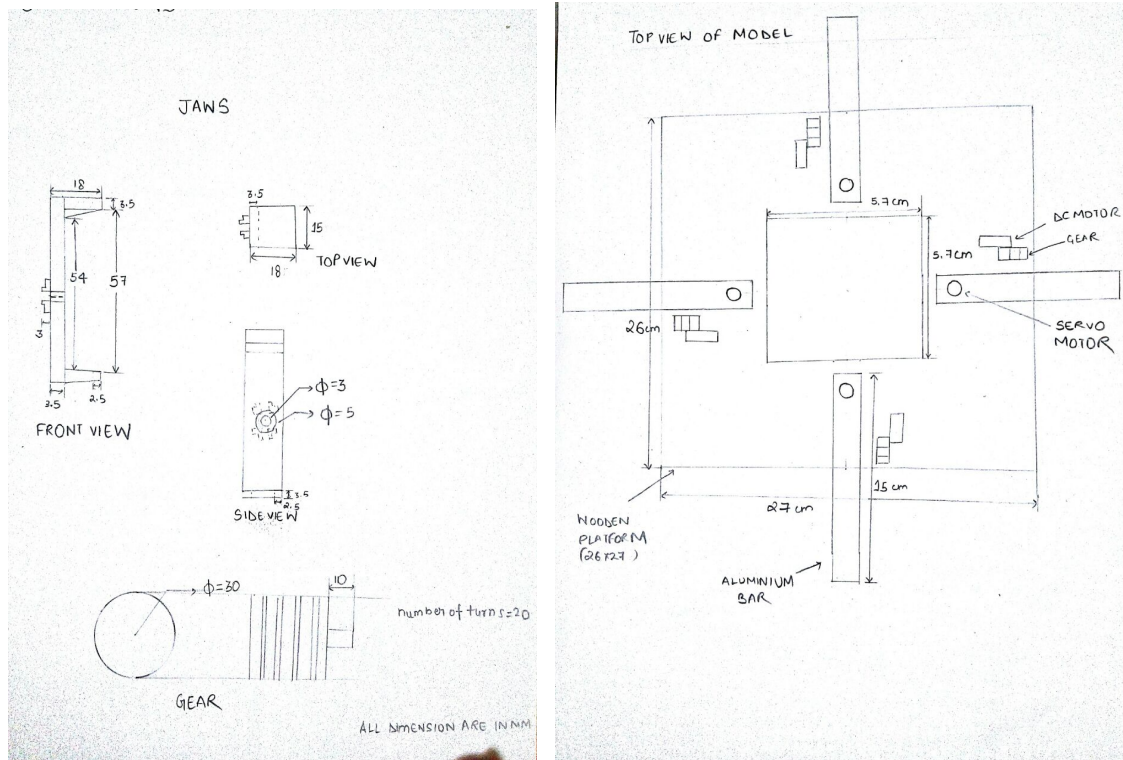 JAWS
18
3.5
54
57
3
3.5
2.5
FRONT VIEW
3.5
15
18
TOP VIEW
ϕ=3
ϕ=5
3.5
2.5
SIDE VIEW
ϕ=30
10
number of turns=20
GEAR
ALL DIMENSION ARE IN MM
TOP VIEW OF MODEL
5.7cm
5.7cm
DC MOTOR
GEAR
SERVO
MOTOR
26cm
15 cm
27 cm
WOODEN
PLATFORM
(26x27)
ALUMINIUM
BAR